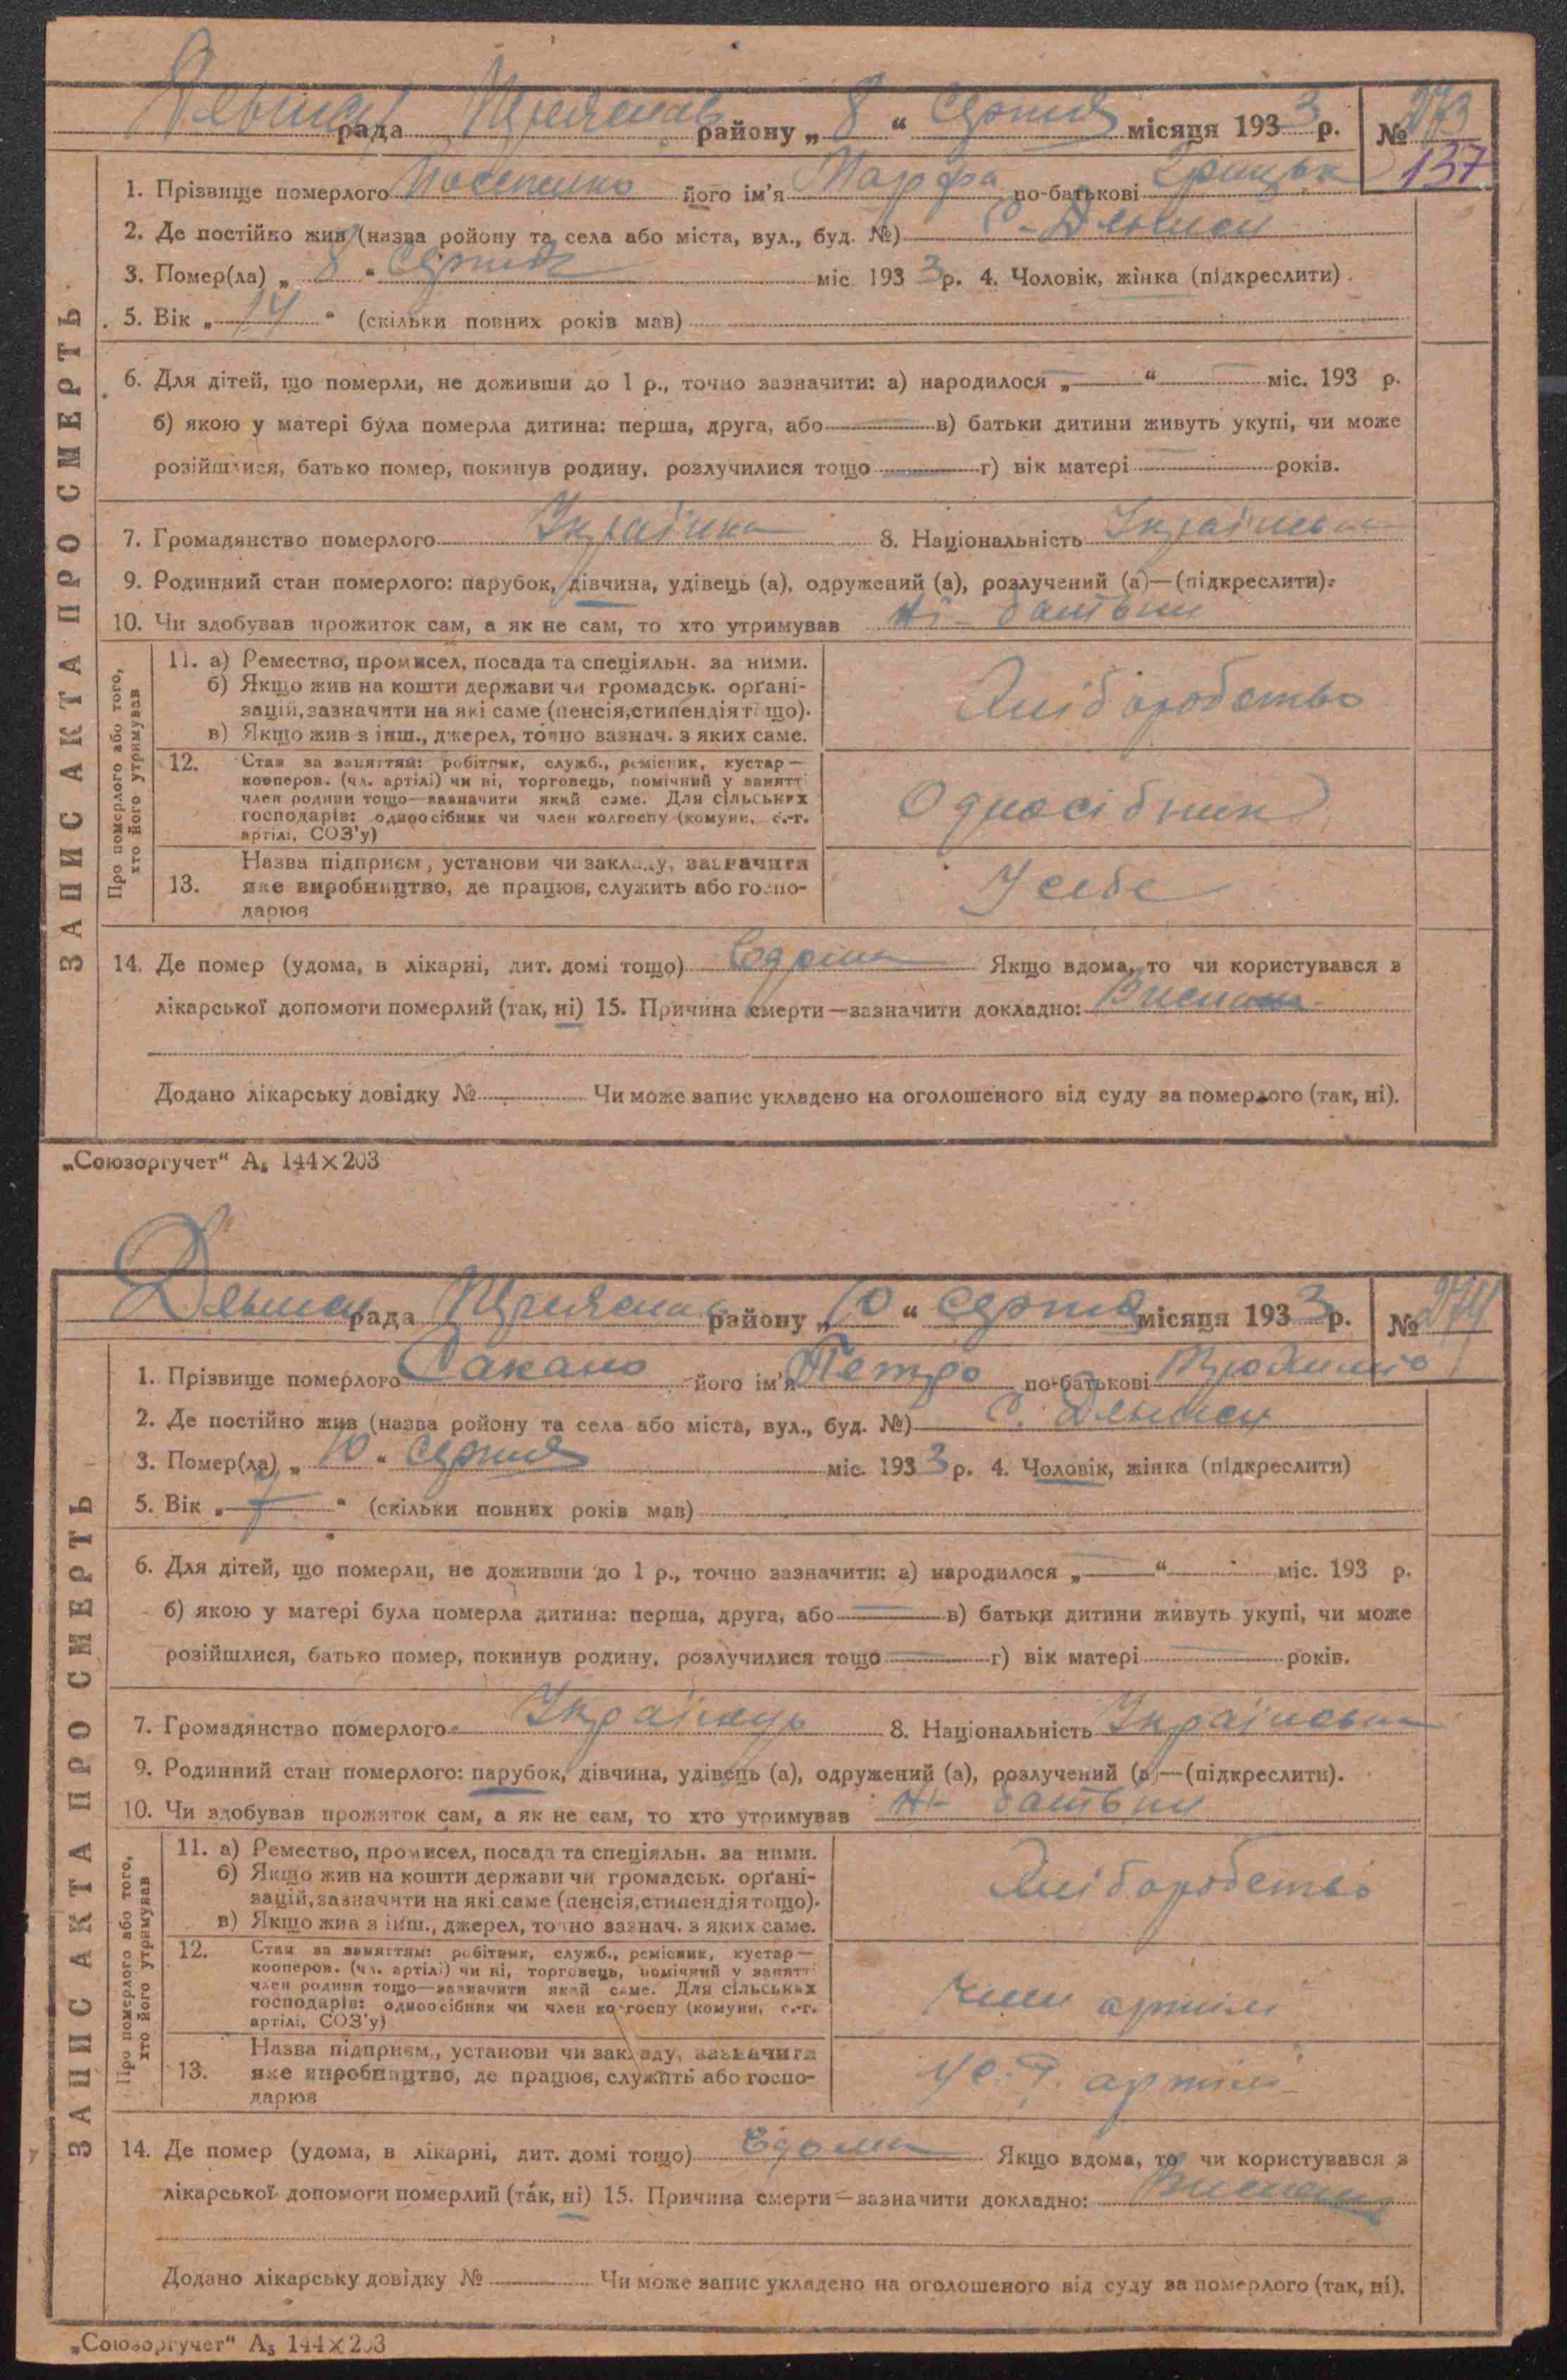 рада району „ 8 “ Серпня місяця 1933 р. № 273
137
1. Прізвище померлого його ім'я Марфа по-батькові Грицьк
2. Де постійно жив (назва ройону та села або міста, вул., буд. №) С. Дем
3. Помер(ла) „ 8 “ Серпня міс 1933 р. 4. Чоловік, жінка (підкреслити).
5. Вік „ 14 “ (скільки повних років мав)
6. Для дітей, що померли, не доживши до 1 р., точно зазначити: а) народилося „ — “ міс. 193 р.
б) якою у матері була померла дитина: перша, друга, або в) батьки дитини живуть укупі, чи може
розійшлися, батько помер, покинув родину, розлучилися тощо г) вік матері років.
7. Громадянство померлого Українка 8. Національність Українська
9. Родинний стан померлого: парубок, дівчина, удівець (а), одружений (а), розлучений (а)—(підкреслити).
10. Чи здобував прожиток сам, а як не сам, то хто утримував Ні - батьки
ЗАПИС АКТА ПРО СМЕРТЬ
Про померлого або того, хто його утримував
11. а) Ремество, промисел, посада та спеціяльн. за ними.
б) Якщо жив на кошти держави чи громадськ. орґані-
зацій, зазначити на які саме (пенсія, стипендія тощо).
в) Якщо жив з інш., джерел, точно зазнач. з яких саме.
Хліборобство
12. Стан за заняттям: робітник, служб., ремісник, кустар—
кооперов. (чл. артілі) чи ні, торговець, помічний у занятті
член родини тощо—зазначити який саме. Для сільських
господарів: одноосібник чи член колгоспу (комуни, с.-г.
артілі, СОЗ'у)
Односібник
13. Назва підприєм, установи чи закладу, зазначити
яке виробництво, де працює, служить або госпо-
дарює
У себе
14. Де помер (удома, в лікарні, дит. домі тощо) Вдома Якщо вдома, то чи користувався з
лікарської допомоги померлий (так, ні) 15. Причина смерти—зазначити докладно:
Додано лікарську довідку № Чи може запис укладено на оголошеного від суду за померлого (так, ні).
„Союзоргучет“ А₅ 144×203
рада району „ 10 “ Серпня місяця 1933 р. № 274
1. Прізвище померлого Сакало його ім'я Петро по-батькові
2. Де постійно жив (назва ройону та села або міста, вул., буд. №) С.
3. Помер(ла) „ 10 “ Серпня міс. 1933 р. 4. Чоловік, жінка (підкреслити)
5. Вік „ 7 “ (скільки повних років мав)
6. Для дітей, що померли, не доживши до 1 р., точно зазначити: а) народилося „ — “ міс. 193 р.
б) якою у матері була померла дитина: перша, друга, або в) батьки дитини живуть укупі, чи може
розійшлися, батько помер, покинув родину, розлучилися тощо г) вік матері років.
7. Громадянство померлого Українець 8. Національність Українська
9. Родинний стан померлого: парубок, дівчина, удівець (а), одружений (а), розлучений (а)—(підкреслити).
10. Чи здобував прожиток сам, а як не сам, то хто утримував Ні - батьки
ЗАПИС АКТА ПРО СМЕРТЬ
Про померлого або того, хто його утримував
11. а) Ремество, промисел, посада та спеціяльн. за ними.
б) Якщо жив на кошти держави чи громадськ. орґані-
зацій, зазначити на які саме (пенсія, стипендія тощо).
в) Якщо жив з інш., джерел, точно зазнач. з яких саме.
Хліборобство
12. Стан за заняттям: робітник, служб., ремісник, кустар—
кооперов. (чл. артілі) чи ні, торговець, помічний у занятті
член родини тощо—зазначити який саме. Для сільських
господарів: одноосібник чи член колгоспу (комуни, с.-г.
артілі, СОЗ'у)
Член артілі
13. Назва підприєм., установи чи закладу, зазначити
яке виробництво, де працює, служить або госпо-
дарює
У с. г. артілі
14. Де помер (удома, в лікарні, дит. домі тощо) Вдома Якщо вдома, то чи користувався з
лікарської допомоги померлий (так, ні) 15. Причина смерти—зазначити докладно:
Додано лікарську довідку № Чи може запис укладено на оголошеного від суду за померлого (так, ні).
„Союзоргучет“ А₅ 144×203